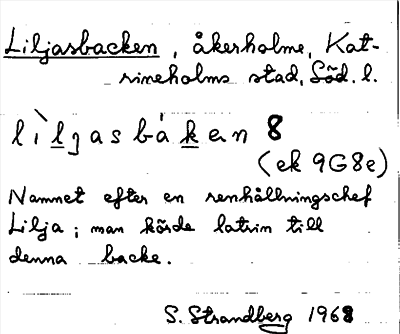 Liljasbacken, åkerholme, Kat-
rineholms stad, Söd. l.
lìljasbàken 8
(ek 9G8e)
Namnet efter en renhållningschef
Lilja; man körde latrin till
denna backe.
S. Strandberg 1968